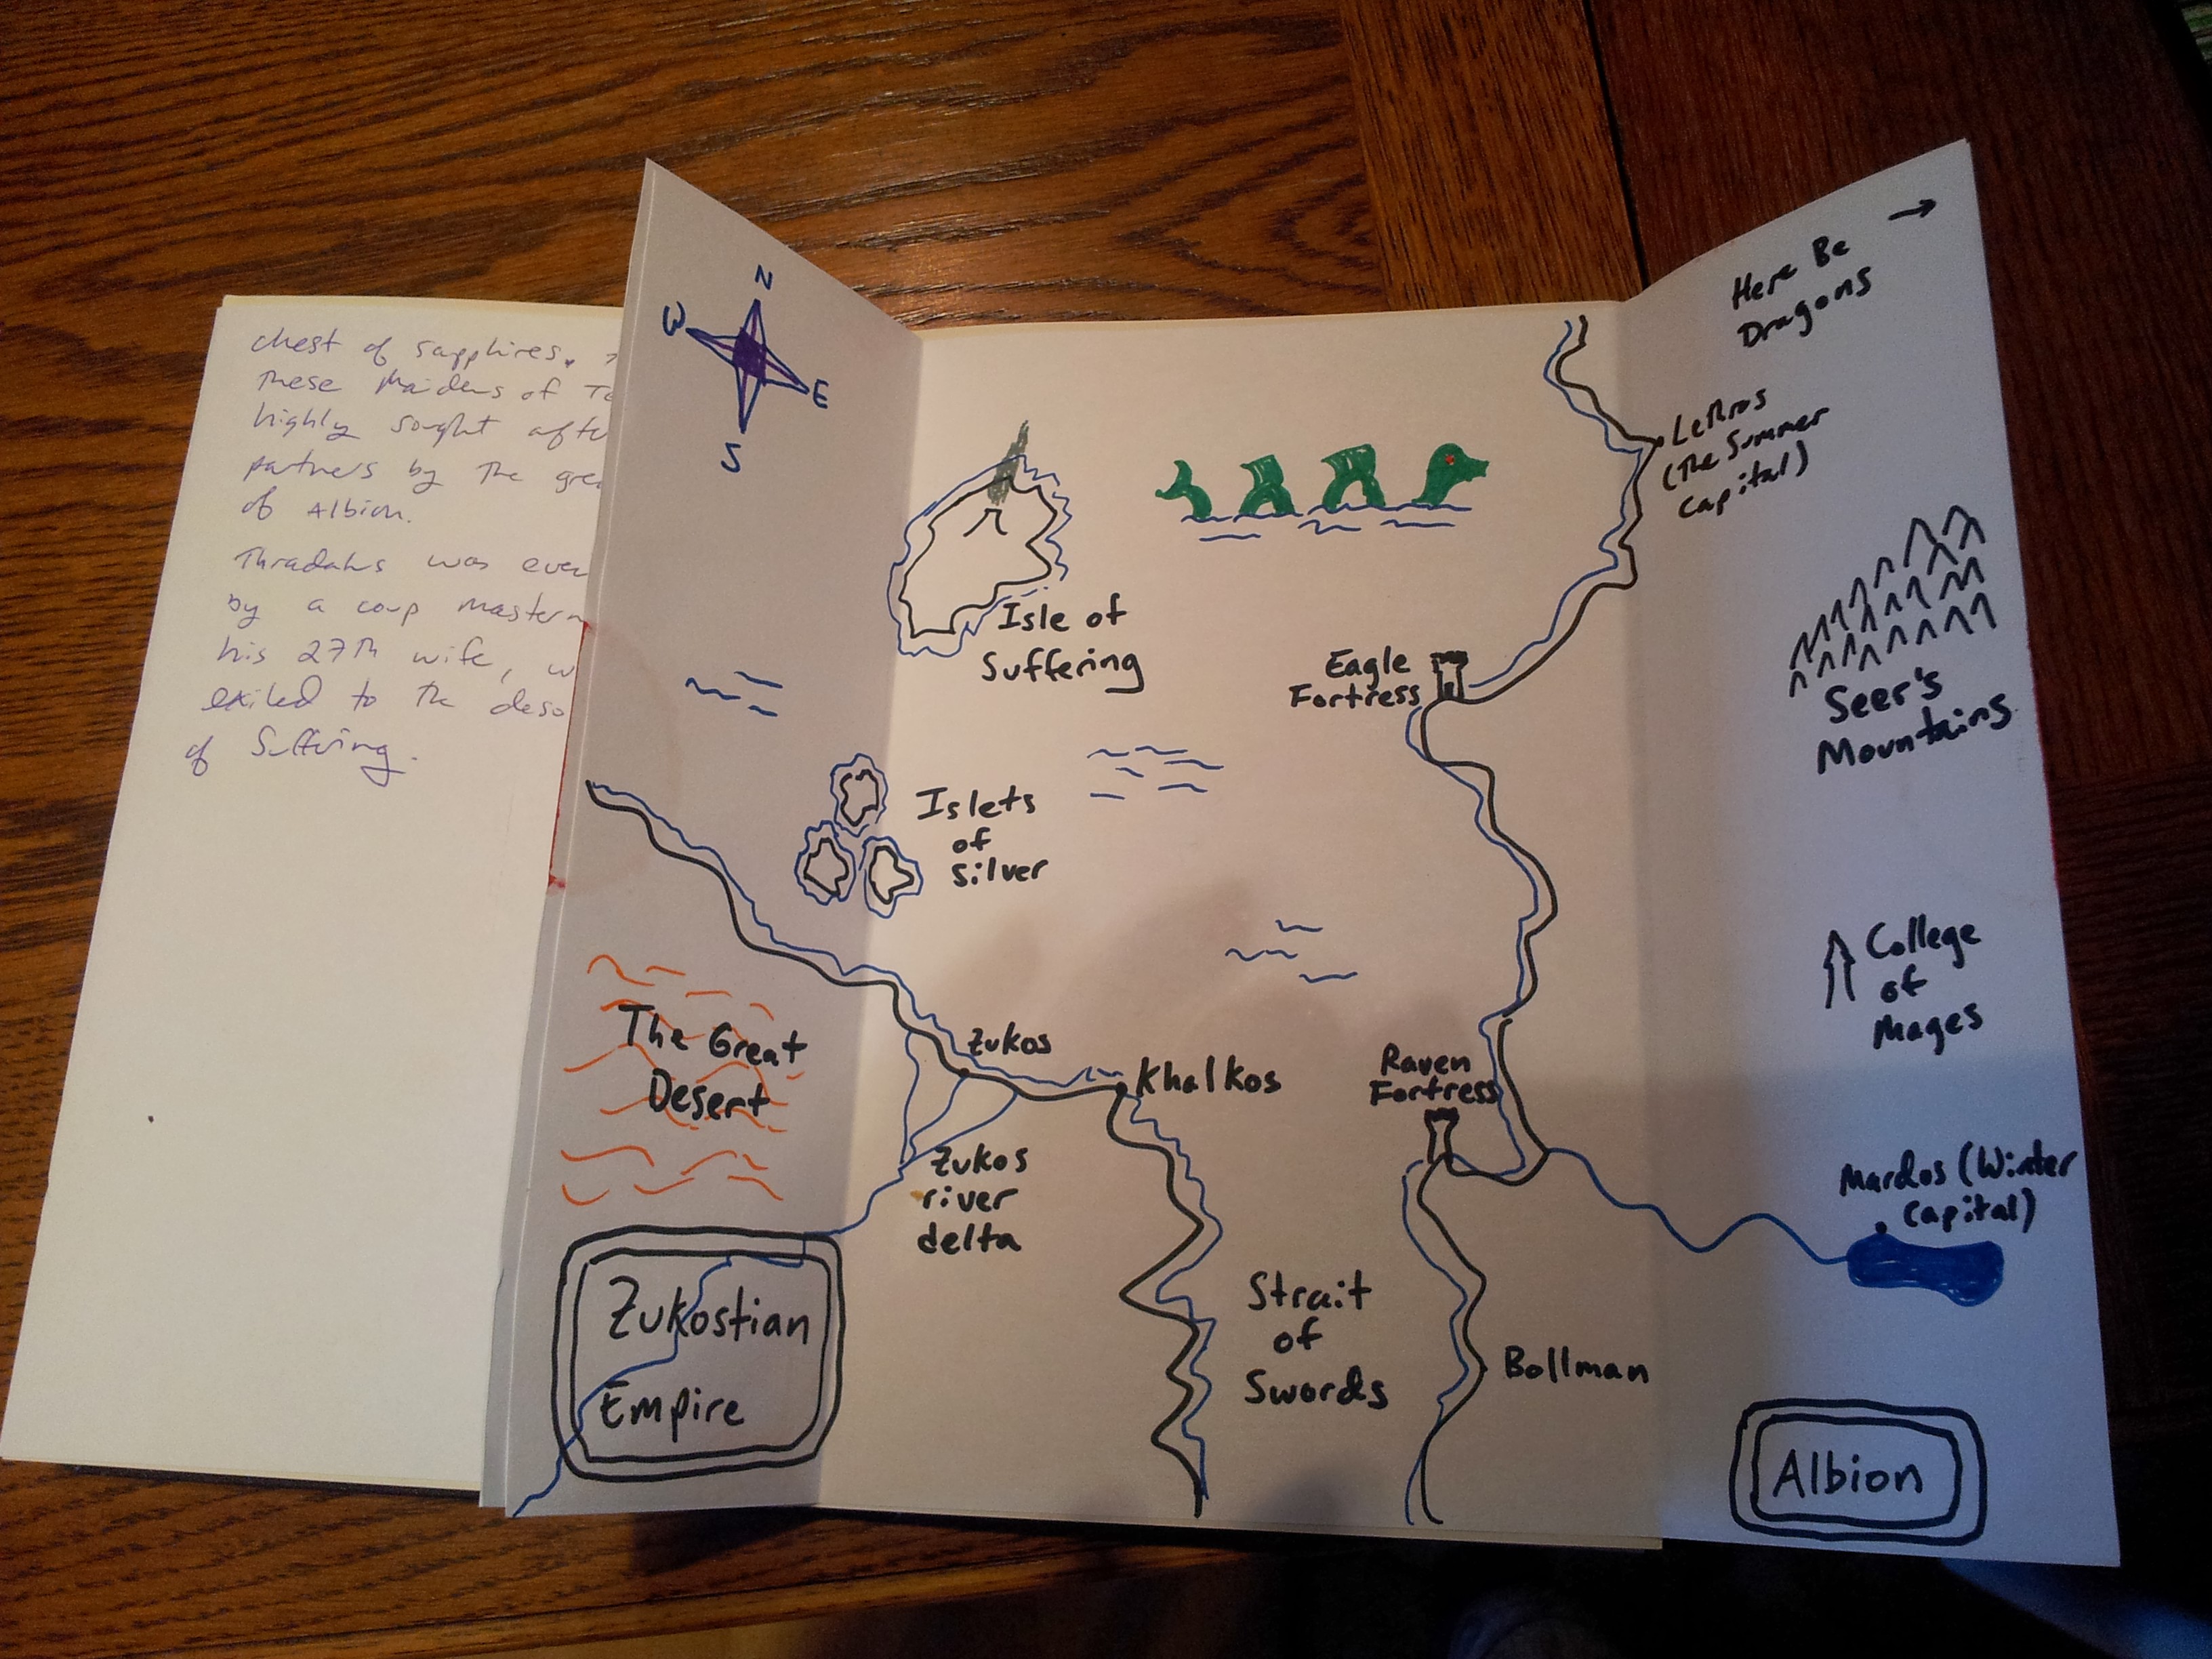 chest of sapphires.
These Maidens of
highly sought
partners by the
of Albion.
Thradahs was
by a coup
his 27th wife,
exiled to the
of Suffering.
N
W
E
S
Isle of
Suffering
Islets
of
Silver
The Great
Desert
Zukos
Khalkos
Zukos
river
delta
Zukostian
Empire
Strait
of
Swords
Eagle
Fortress
Raven
Fortress
Bollman
Here Be
Dragons
→
Lethros
(The Summer
Capital)
Seer's
Mountains
College
of
Mages
Mardos (Winter
Capital)
Albion